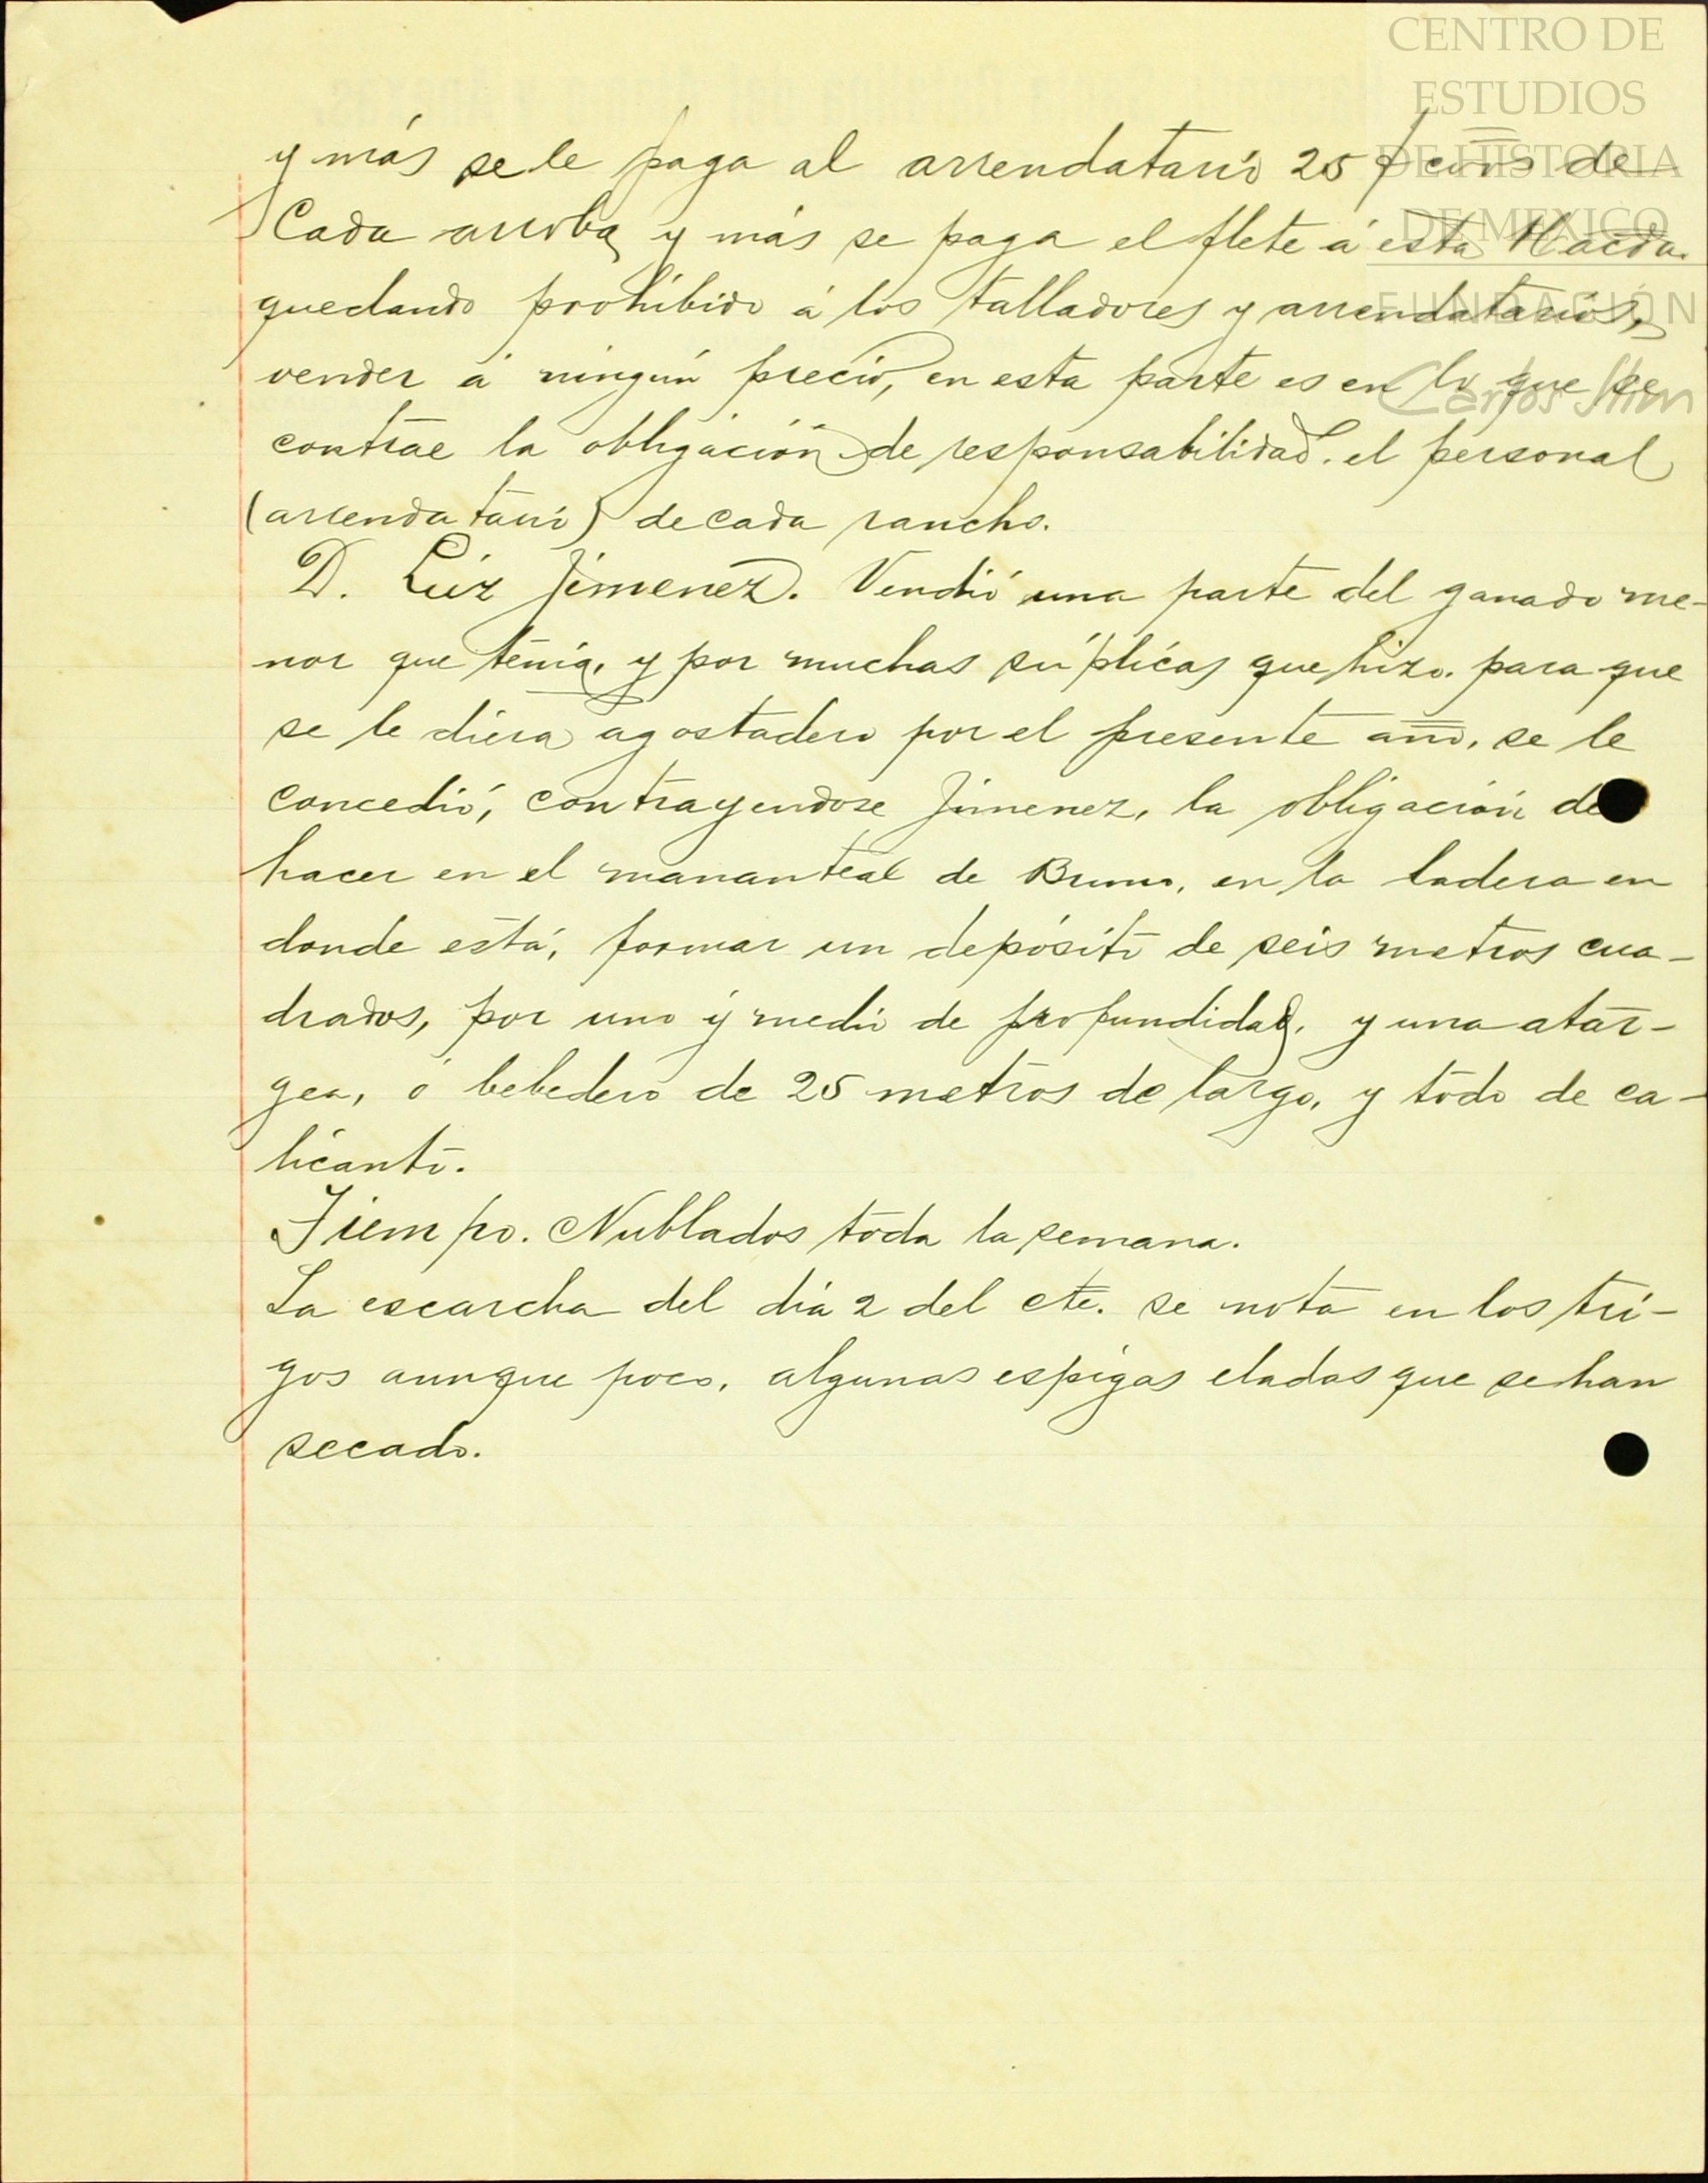 CENTRO DE
ESTUDIOS
DE HISTORIA
DE MEXICO
FUNDACIÓN
Carlos Slim
y más se le paga al arrendatario 25 de
Cada arroba y más se paga el flete á esta Hacda.
quedando prohibido á los talladores y arrendatarios,
vender á ningún precio, en esta parte es en lo que se
contrae la obligación de responsabilidad. el personal
(arrendatario) de cada rancho.
D. Luiz Jimenez. Vendió una parte del ganado me-
nor que tenia, y por muchas súplicas que hizo. para que
se le diera agostadero por el presente año, se le
concedió, contrayendose Jimenez, la obligación de
hacer en el mananteal de Bruno, en la ladera en
donde está, formar un depósito de seis metros cua-
drados, por uno y medio de profundidad, y una atar-
gea, ó bebedero de 25 metros de largo, y todo de ca-
licanto.
Tiempo. Nublados toda la semana.
La escarcha del dia 2 del cte. se nota en los tri-
gos aunque poco, algunas espigas eladas que se han
secado.